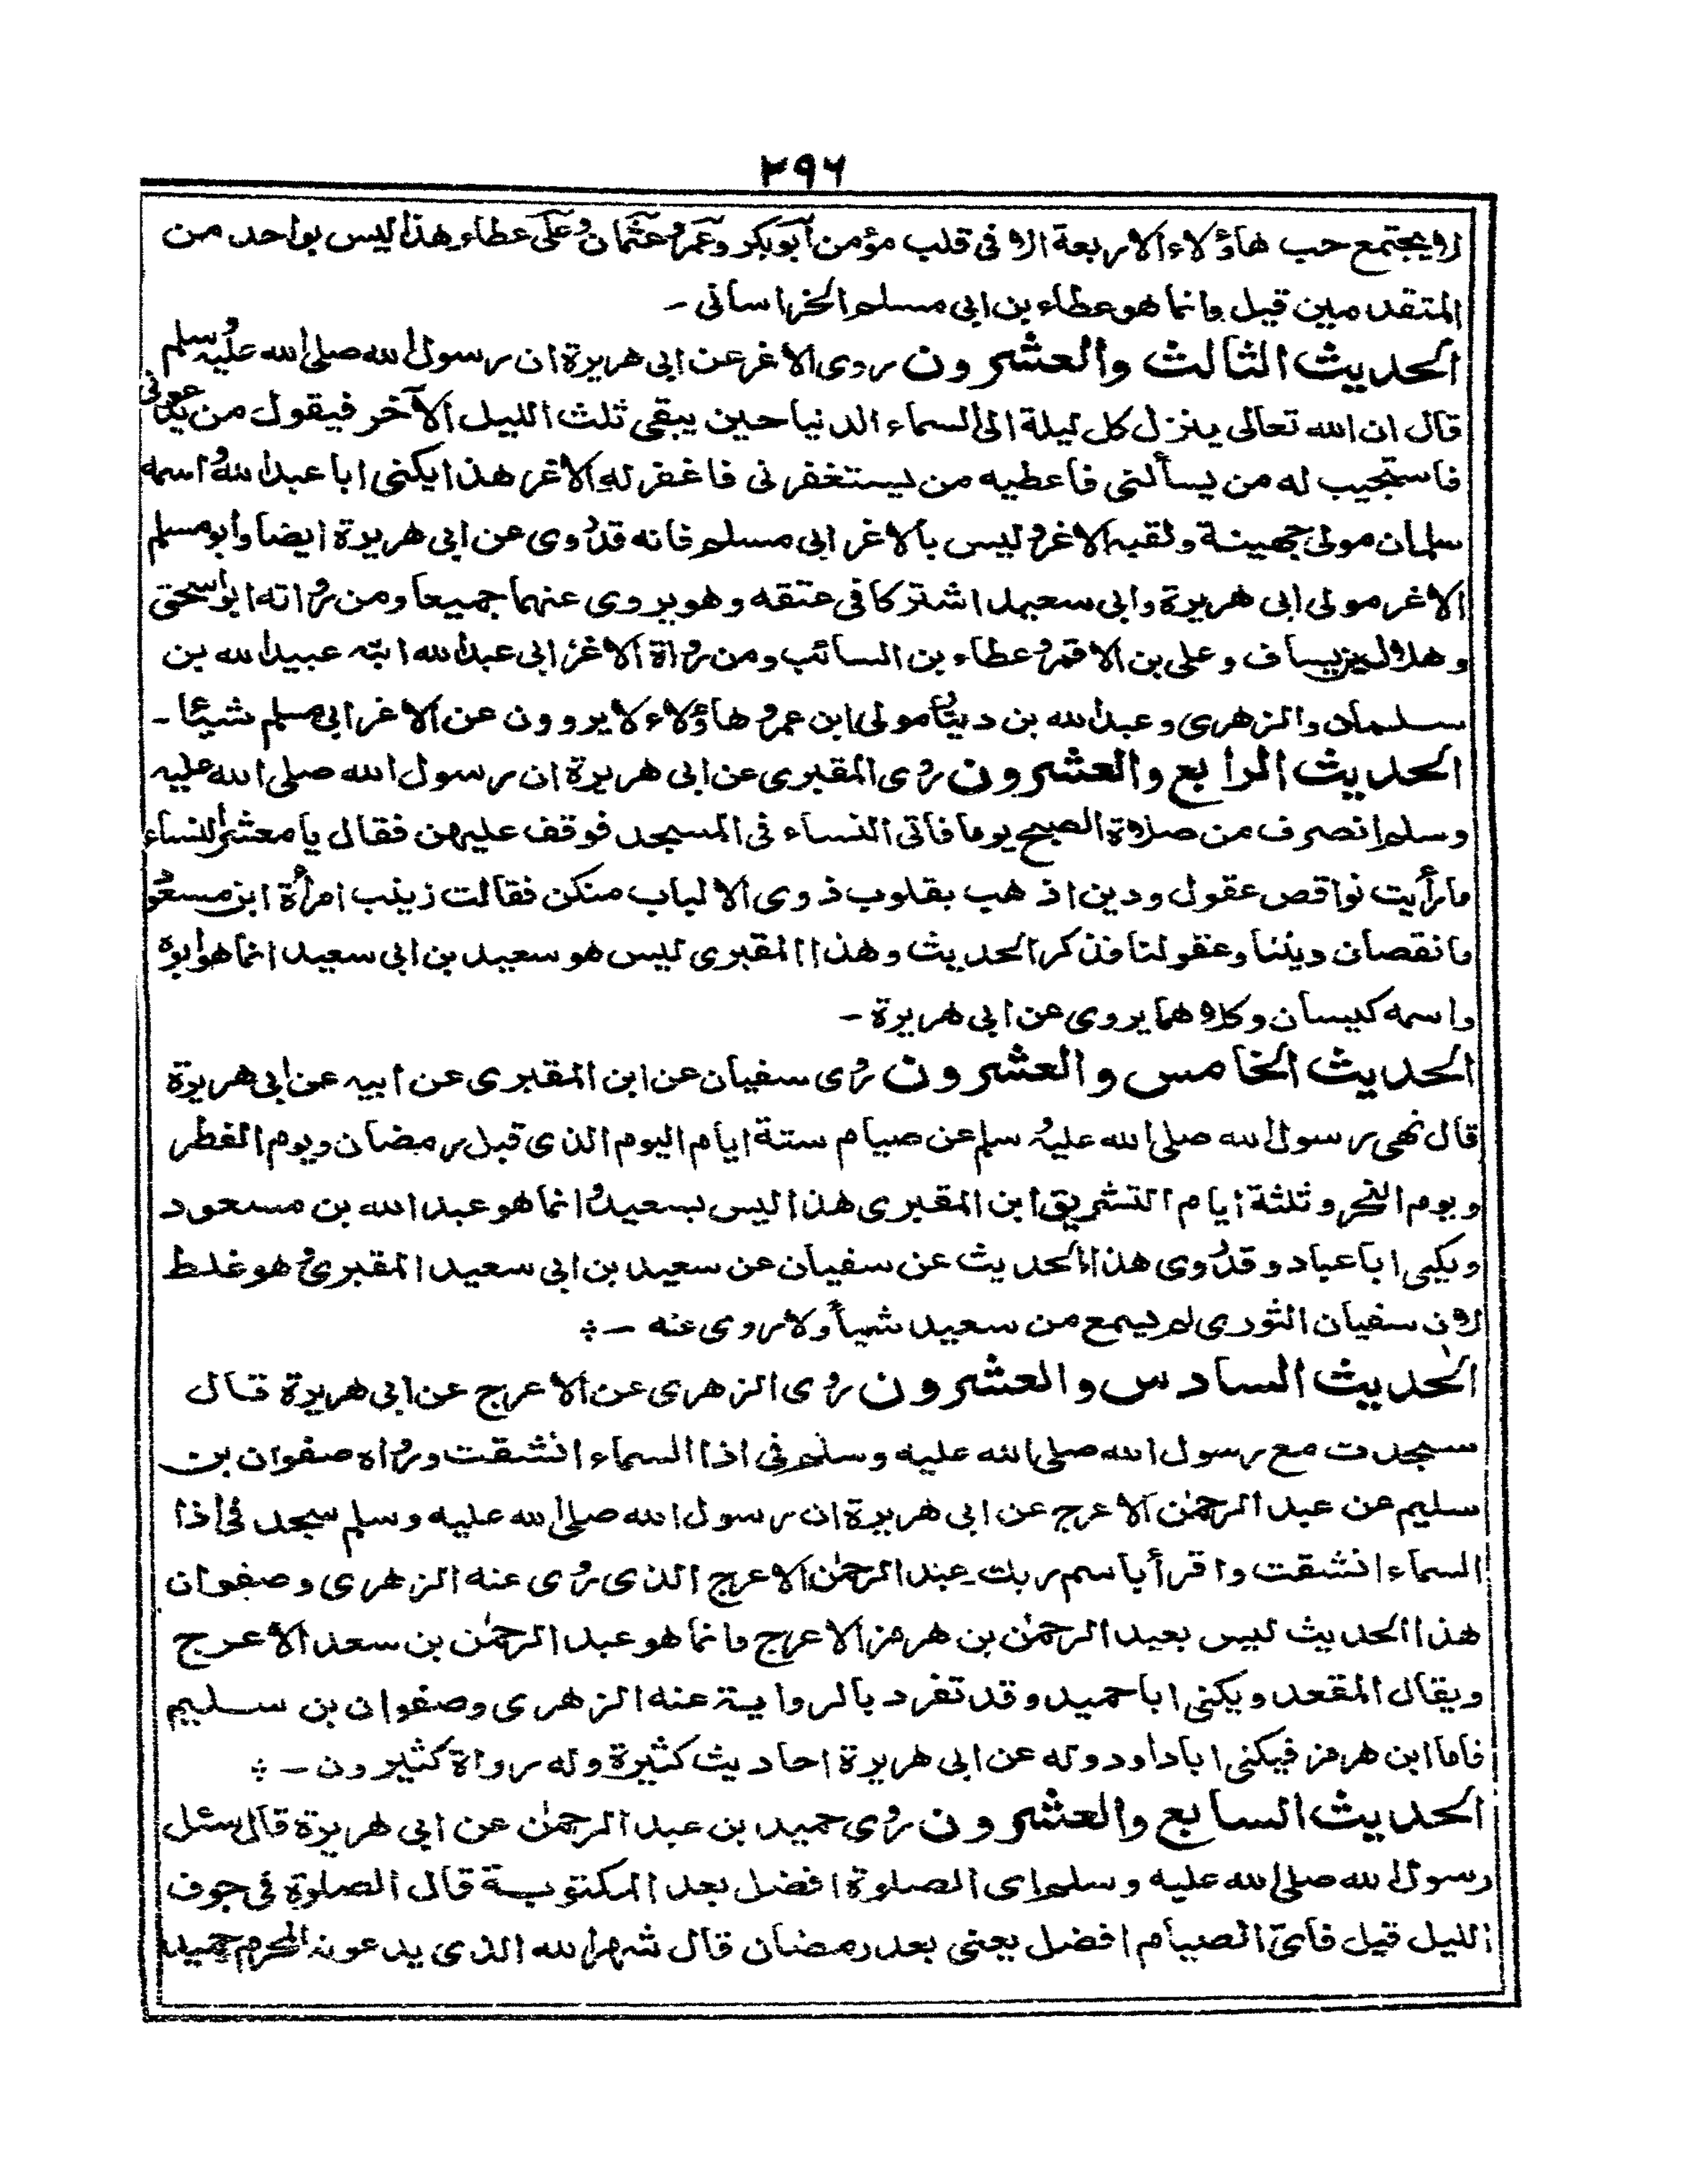 ٢٩٦
لا يجتمع حب هاؤلاء الاربعة الا فى قلب مؤمن أبو بكر وعمر وعثمان وعلى عطاء هذا ليس بواحد من
المتقدمين قيل وانما هو عطاء بن ابى مسلم الخراسانى -
الحديث الثالث والعشرون روى الاغر عن ابى هريرة ان رسول الله صلى الله عليه وسلم
قال ان الله تعالى ينزل كل ليلة الى السماء الدنيا حين يبقى ثلث الليل الآخر فيقول من يدعونى
فاستجيب له من يسألنى فاعطيه من يستغفرنى فاغفر له الاغر هذا يكنى ابا عبد الله واسمه
سلمان مولى جهينة ولقبه الاغر وليس بالاغر ابى مسلم فانه قد روى عن ابى هريرة ايضا وابو مسلم
الاغر مولى ابى هريرة وابى سعيد اشتركا فى عتقه وهو يروى عنهما جميعا ومن رواته ابو اسحق
وهلال بن يساف وعلى بن الاقمر وعطاء بن السائب ومن رواة الاغر ابى عبد الله ابنه عبيد الله بن
سلمان والزهرى وعبد الله بن دينار مولى ابن عمر وهاؤلاء لا يروون عن الاغر ابى مسلم شيئا -
الحديث الرابع والعشرون روى المقبرى عن ابى هريرة ان رسول الله صلى الله عليه
وسلم انصرف من صلاة الصبح يوما فاتى النساء فى المسجد فوقف عليهن فقال يا معشر النساء
ما رأيت نواقص عقول ودين اذهب بقلوب ذوى الالباب منكن فقالت زينب امرأة ابن مسعود
ما نقصان ديننا وعقولنا فذكر الحديث وهذا المقبرى ليس هو سعيد بن ابى سعيد انما هو ابوه
واسمه كيسان وكلاهما يروى عن ابى هريرة -
الحديث الخامس والعشرون روى سفيان عن ابن المقبرى عن ابيه عن ابى هريرة
قال نهى رسول الله صلى الله عليه وسلم عن صيام ستة ايام اليوم الذى قبل رمضان ويوم الفطر
ويوم النحر وثلثة ايام التشريق ابن المقبرى هذا ليس بسعيد وانما هو عبد الله بن مسعود
ويكنى ابا عباد وقد روى هذا الحديث عن سفيان عن سعيد بن ابى سعيد المقبرى وهو غلط
لان سفيان الثورى لم يسمع من سعيد شيأ ولا روى عنه -
الحديث السادس والعشرون روى الزهرى عن الاعرج عن ابى هريرة قال
سجدت مع رسول الله صلى الله عليه وسلم فى اذا السماء انشقت ورواه صفوان بن
سليم عن عبد الرحمٰن الاعرج عن ابى هريرة ان رسول الله صلى الله عليه وسلم سجد فى اذا
السماء انشقت واقرأ باسم ربك عبد الرحمٰن الاعرج الذى روى عنه الزهرى وصفوان
هذا الحديث ليس بعبد الرحمٰن بن هرمز الاعرج وانما هو عبد الرحمٰن بن سعد الاعرج
ويقال المقعد ويكنى ابا حميد وقد تفرد بالرواية عنه الزهرى وصفوان بن سليم
فاما ابن هرمز فيكنى ابا داود وله عن ابى هريرة احاديث كثيرة وله رواة كثيرون -
الحديث السابع والعشرون روى حميد بن عبد الرحمٰن عن ابى هريرة قال سئل
رسول الله صلى الله عليه وسلم اى الصلوة افضل بعد المكتوبة قال الصلوة فى جوف
الليل قيل فأىّ الصيام افضل يعنى بعد رمضان قال شهر الله الذى يدعونه المحرم حميد